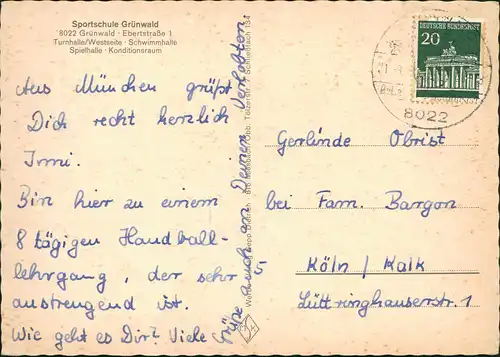 Sportschule Grünwald
8022 Grünwald · Ebertstraße 1
Turnhalle/Westseite · Schwimmhalle
Spielhalle · Konditionsraum
Aus München grüßt
Dich recht herzlich
Irmi.
Bin hier zu einem
8 tägigen Handball-
lehrgang, der sehr
anstrengend ist.
Wie geht es Dir? Viele
Grüße auch an Deinen Verlobten
20
DEUTSCHE BUNDESPOST
8022
Gerlinde Obrist
bei Fam. Bargon
5 Köln / Kalk
Lüttringhauserstr. 1